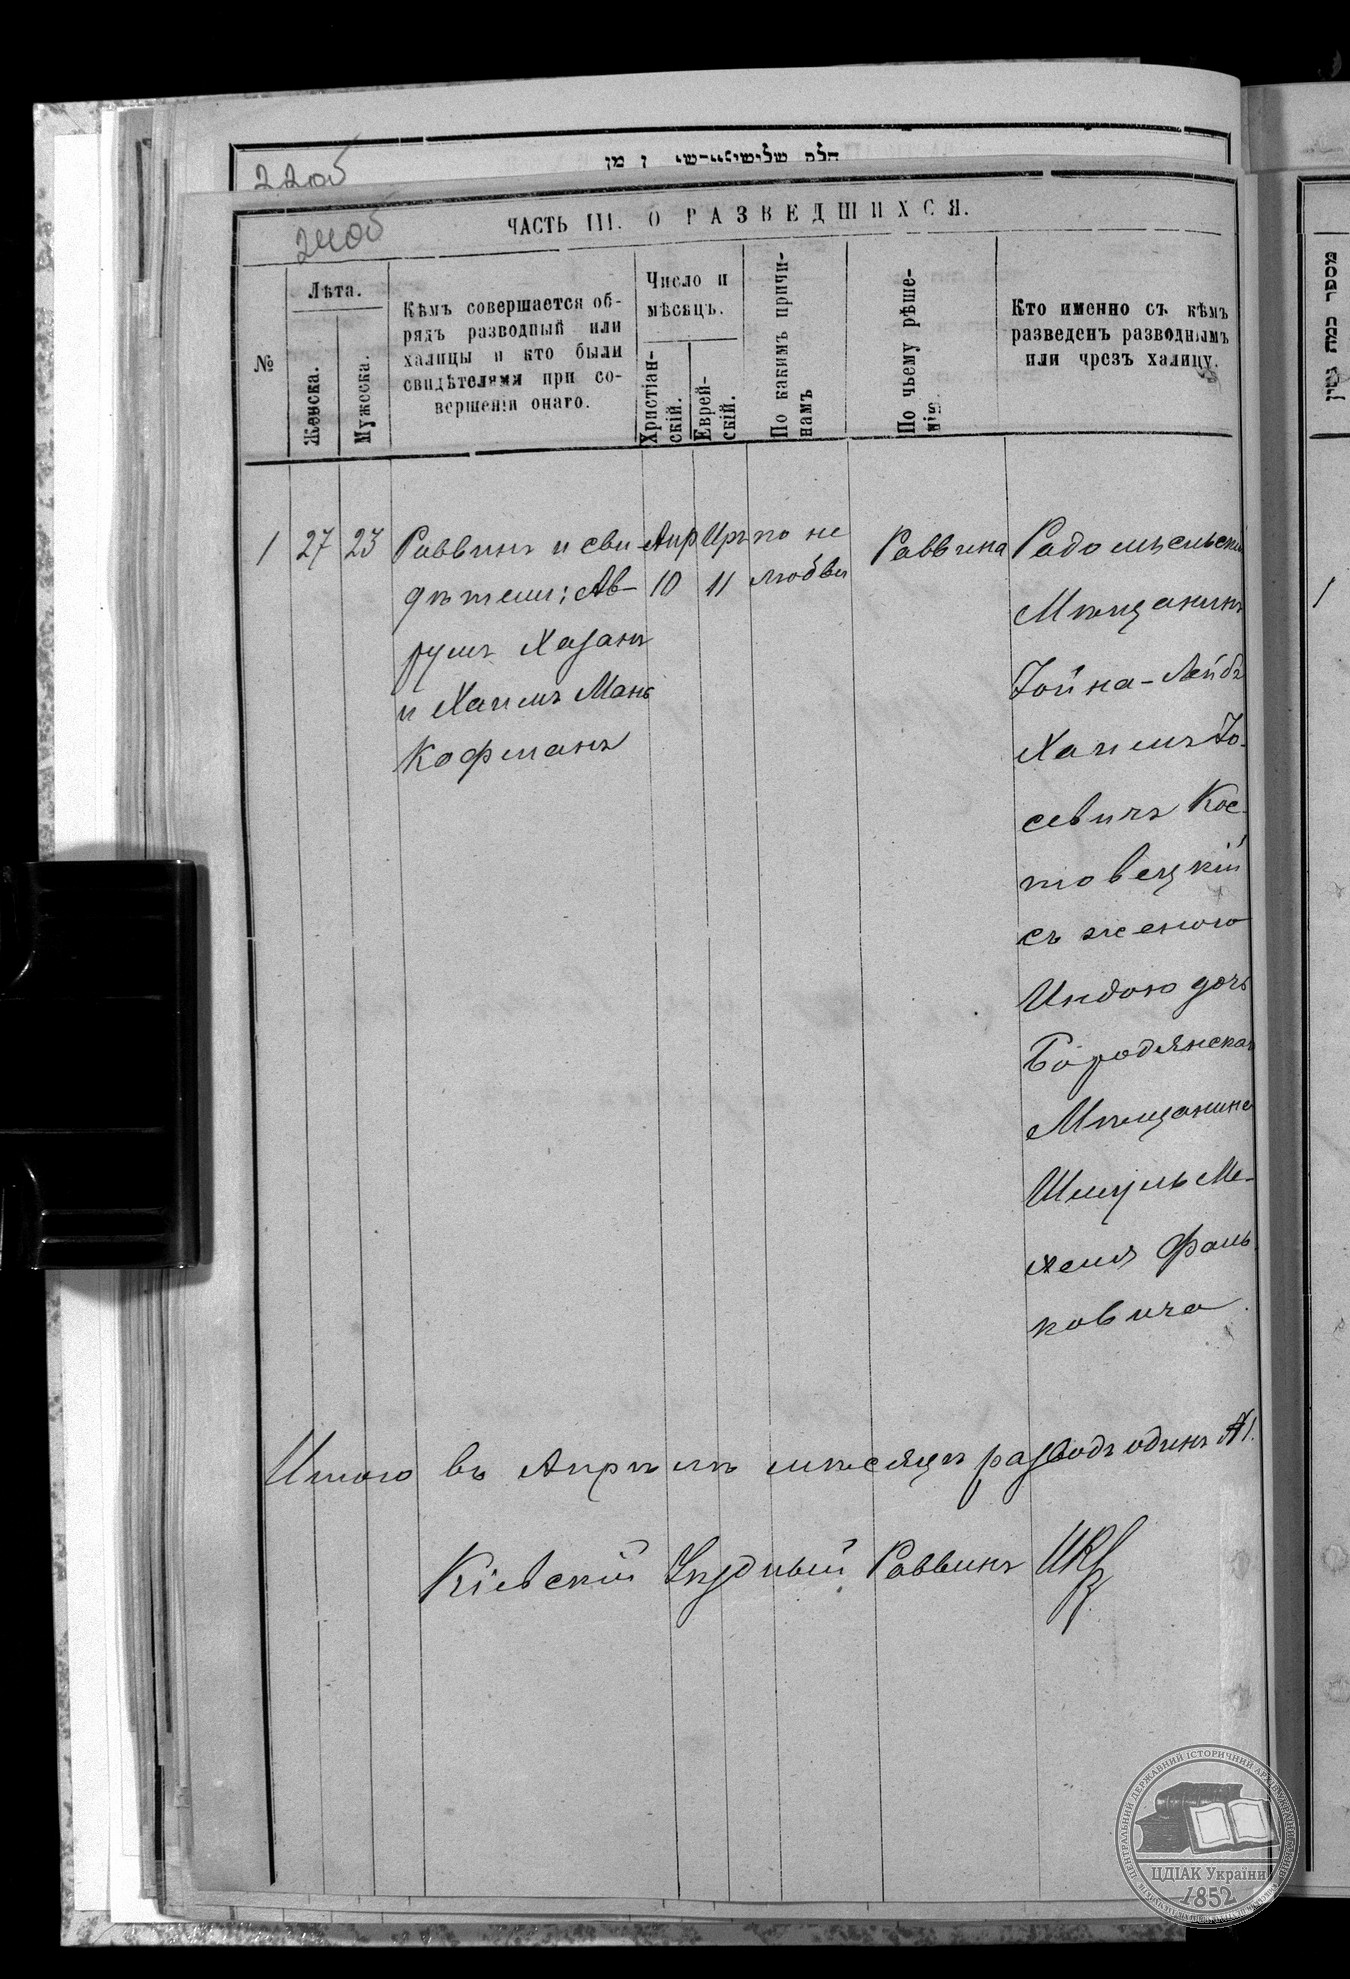 22об
24об
ЧАСТЬ III. О РАЗВЕДШИХСЯ.
№
Лѣта.
Женска.
Мужеска.
Кѣмъ совершается об-
рядъ разводный или
халицы и кто были
свидѣтелями при со-
вершеніи онаго.
Число и
мѣсяцъ.
Христіан-
скій.
Еврей-
скій.
По какимъ причи-
намъ
По чьему рѣше-
нію.
Кто именно съ кѣмъ
разведенъ разводнымъ
или чрезъ халицу.
1
27
23
Раввинъ и сви-
дѣтели: Ав-
румъ Хазанъ
и Хаимъ Мань
Кофманъ
Апр
10
Иръ
11
по не
любви
Раввина
Радомысльскій
Мѣщанинъ
Іойна-Лейбъ
Хаимъ Іо-
севичъ Кос-
товецкій
съ женою
Индою дочь
Бородянская
Мѣщанина
Шмуль Ме-
хеля Фаль
ковича.
Итого въ Апрѣлѣ мѣсяцѣ разводъ одинъ №1.
Кіевскій Уѣздный Раввинъ
מספר כמה גטין
1
ЦЕНТРАЛЬНИЙ ДЕРЖАВНИЙ ІСТОРИЧНИЙ АРХІВ УКРАЇНИ
ЦДІАК України
1852